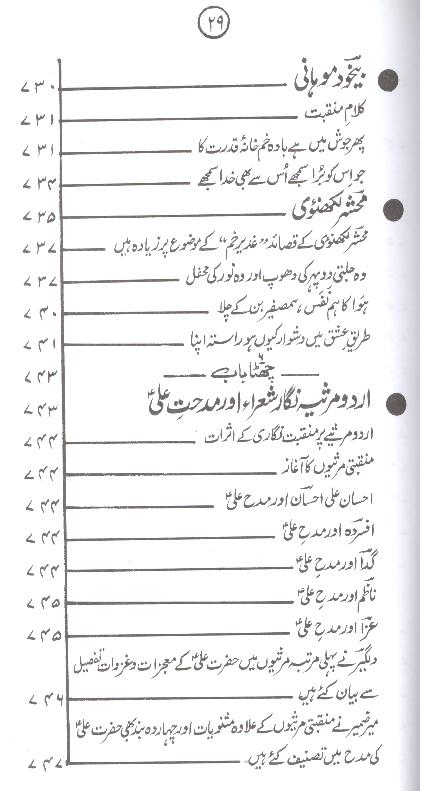 ۲۹
بیخود موہانی ۷۳۰
کلامِ منقبت ۷۳۱
پھر جوش میں ہے بادہ خم خانۂ قدرت کا ۷۳۱
جو اس کو بُرا سمجھے اُس سے بھی خدا سمجھے ۷۳۴
محشر لکھنوی ۷۳۵
محشر لکھنوی کے قصائد ”غدیر خم“ کے موضوع پر زیادہ ہیں ۷۳۷
وہ جلتی دوپہر کی دھوپ اور وہ نور کی محفل ۷۳۷
ہوا کا ہم نفَس، ہمصفیر بن کے چلا ۷۴۰
طریقِ عشق میں دشوار کیوں ہو راستہ اپنا ۷۴۱
چھٹا باب ۷۴۳
اردو مرثیہ نگار شعراء اور مدحتِ علیؑ ۷۴۳
اردو مرثیے پر منقبت نگاری کے اثرات ۷۴۴
منقبتی مرثیوں کا آغاز ۷۴۴
احسان علی احسان اور مدحِ علیؑ ۷۴۴
افسردہ اور مدحِ علیؑ ۷۴۴
گدا اور مدحِ علیؑ ۷۴۴
ناظم اور مدحِ علیؑ ۷۴۵
عزا اور مدحِ علیؑ ۷۴۵
دلگیر نے پہلی مرتبہ مرثیوں میں حضرت علیؑ کے معجزات و غزوات تفصیل
سے بیان کئے ہیں ۷۴۶
میر ضمیر نے منقبتی مرثیوں کے علاوہ مثنویات اور چہاردہ بند بھی حضرت علیؑ
کی مدح میں تصنیف کئے ہیں۔ ۷۴۷